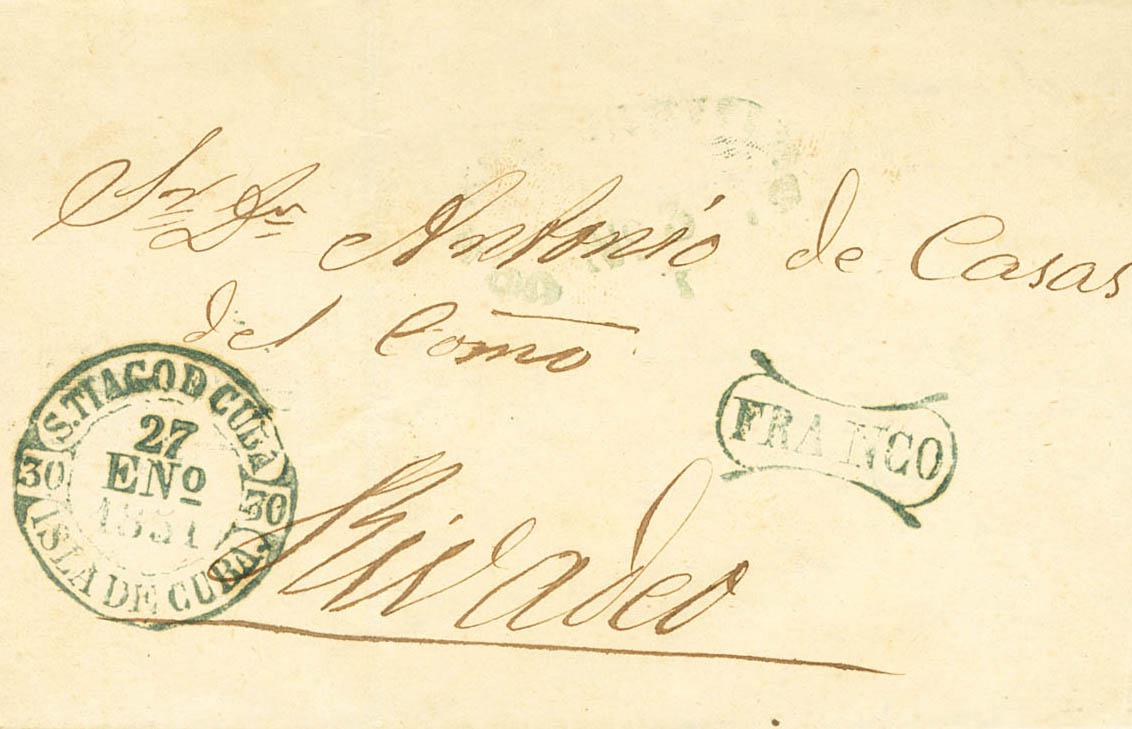 Sr. Dn. Antonio de Casas
del Como
Rivadeo
S. TIAGO D CUBA
27
ENO
1851
30
30
ISLA DE CUBA.
FRANCO